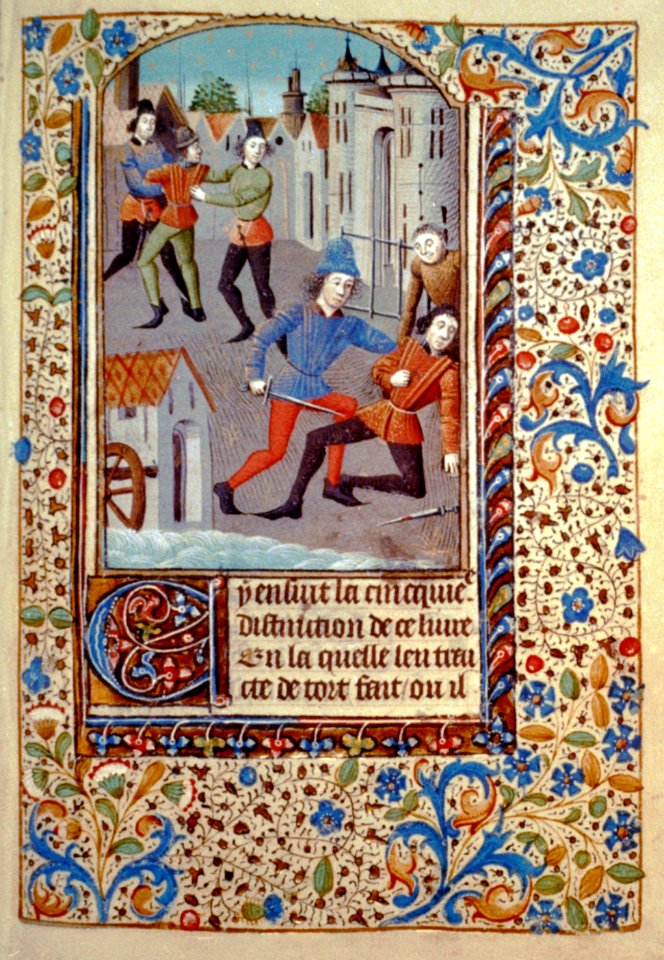 Cy ensuit la cincquie.
distinction de ce livre
En la quelle len trai
cte de tort fait / ou il